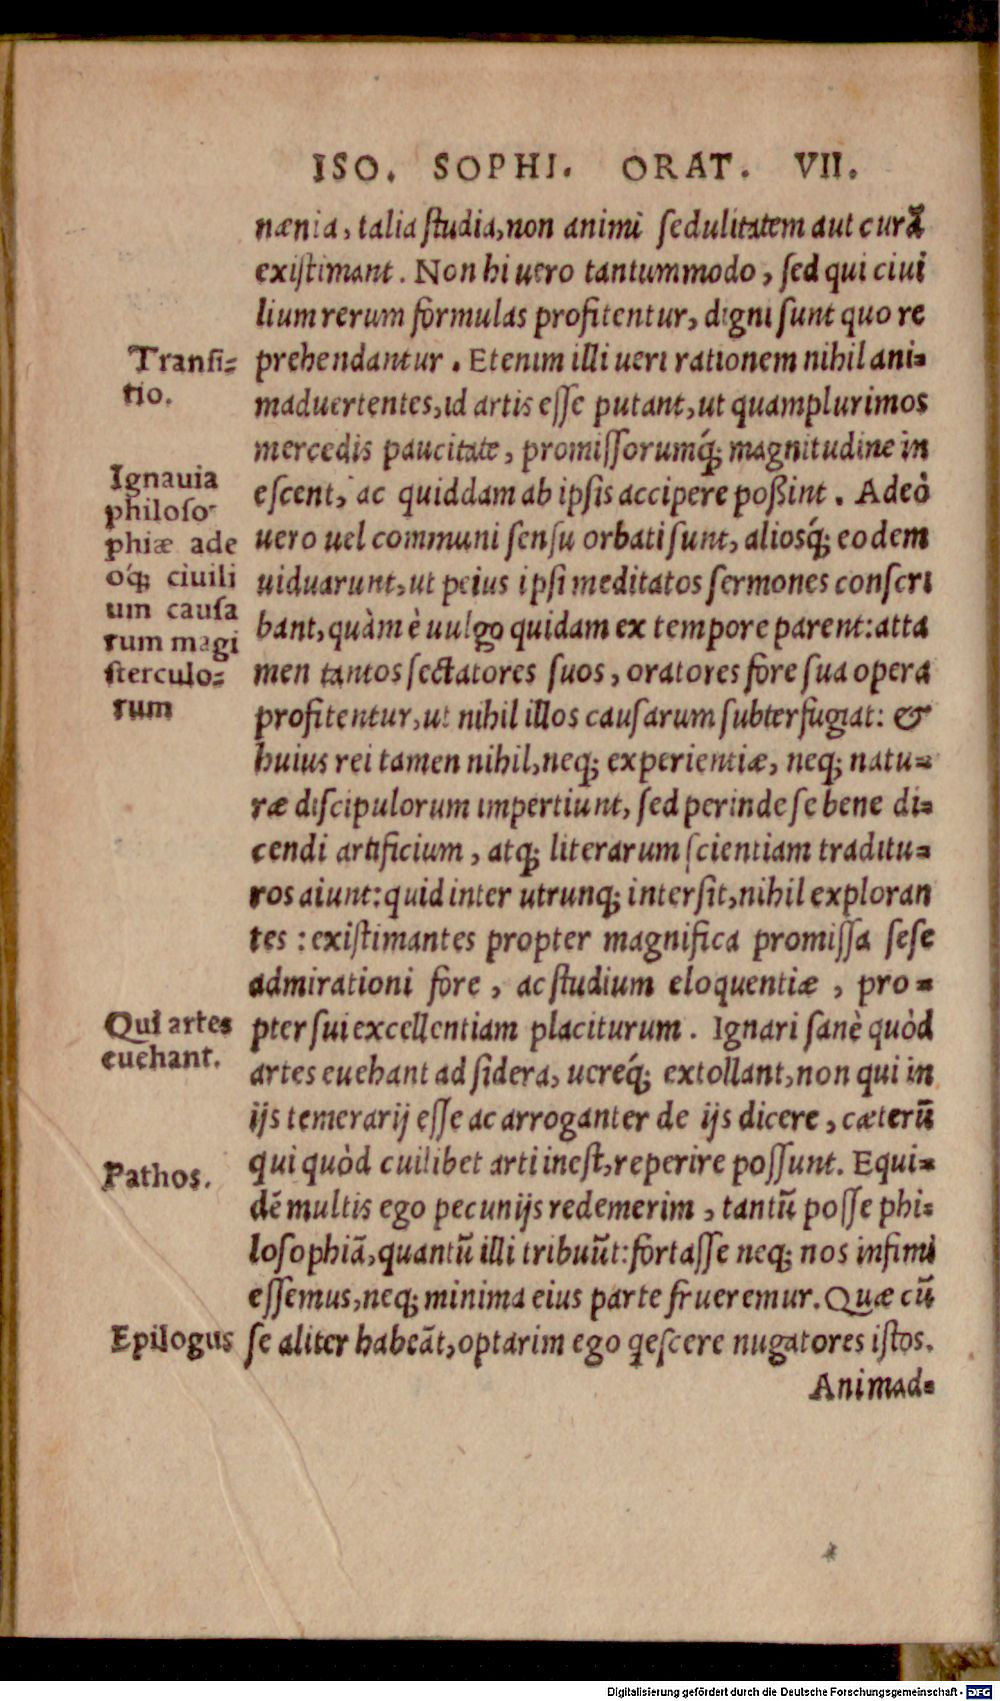 ISO. SOPHI. ORAT. VII.
nænia, talia ſtudia, non animi ſedulitatem aut curã
exiſtimant. Non hi uero tantummodo, ſed qui ciui
lium rerum formulas profitentur, digni ſunt quo re
prehendantur. Etenim illi ueri rationem nihil ani=
maduertentes, id artis eſſe putant, ut quamplurimos
mercedis paucitate, promiſſorumq́; magnitudine in
eſcent, ac quiddam ab ipſis accipere poßint. Adeò
uero uel communi ſenſu orbati ſunt, aliosq́; eodem
uiduarunt, ut peius ipſi meditatos ſermones conſcri
bant, quàm è uulgo quidam ex tempore parent: atta
men tantos ſectatores ſuos, oratores fore ſua opera
profitentur, ut nihil illos cauſarum ſubterfugiat: &
huius rei tamen nihil, neq; experientiæ, neq; natu=
ræ diſcipulorum impertiunt, ſed perinde ſe bene di=
cendi artificium, atq; literarum ſcientiam traditu=
ros aiunt: quid inter utrunq; interſit, nihil exploran
tes: exiſtimantes propter magnifica promiſſa ſeſe
admirationi fore, ac ſtudium eloquentiæ, pro=
pter ſui excellentiam placiturum. Ignari ſanè quòd
artes euehant ad ſidera, uereq́; extollant, non qui in
ijs temerarij eſſe ac arroganter de ijs dicere, cæterũ
qui quòd cuilibet arti ineſt, reperire poſſunt. Equi=
dẽ multis ego pecunijs redemerim, tantũ poſſe phi=
loſophiã, quantũ illi tribuũt: fortaſſe neq; nos infimi
eſſemus, neq; minima eius parte frueremur. Quæ cũ
ſe aliter habeãt, optarim ego qeſcere nugatores iſtos.
Animad=
Tranſi=
tio.
Ignauia
philoſo
phiæ ade
oq́; ciuili
um cauſa
rum magi
ſterculo=
rum
Qui artes
euehant.
Pathos.
Epilogus
Digitalisierung gefördert durch die Deutsche Forschungsgemeinschaft - DFG